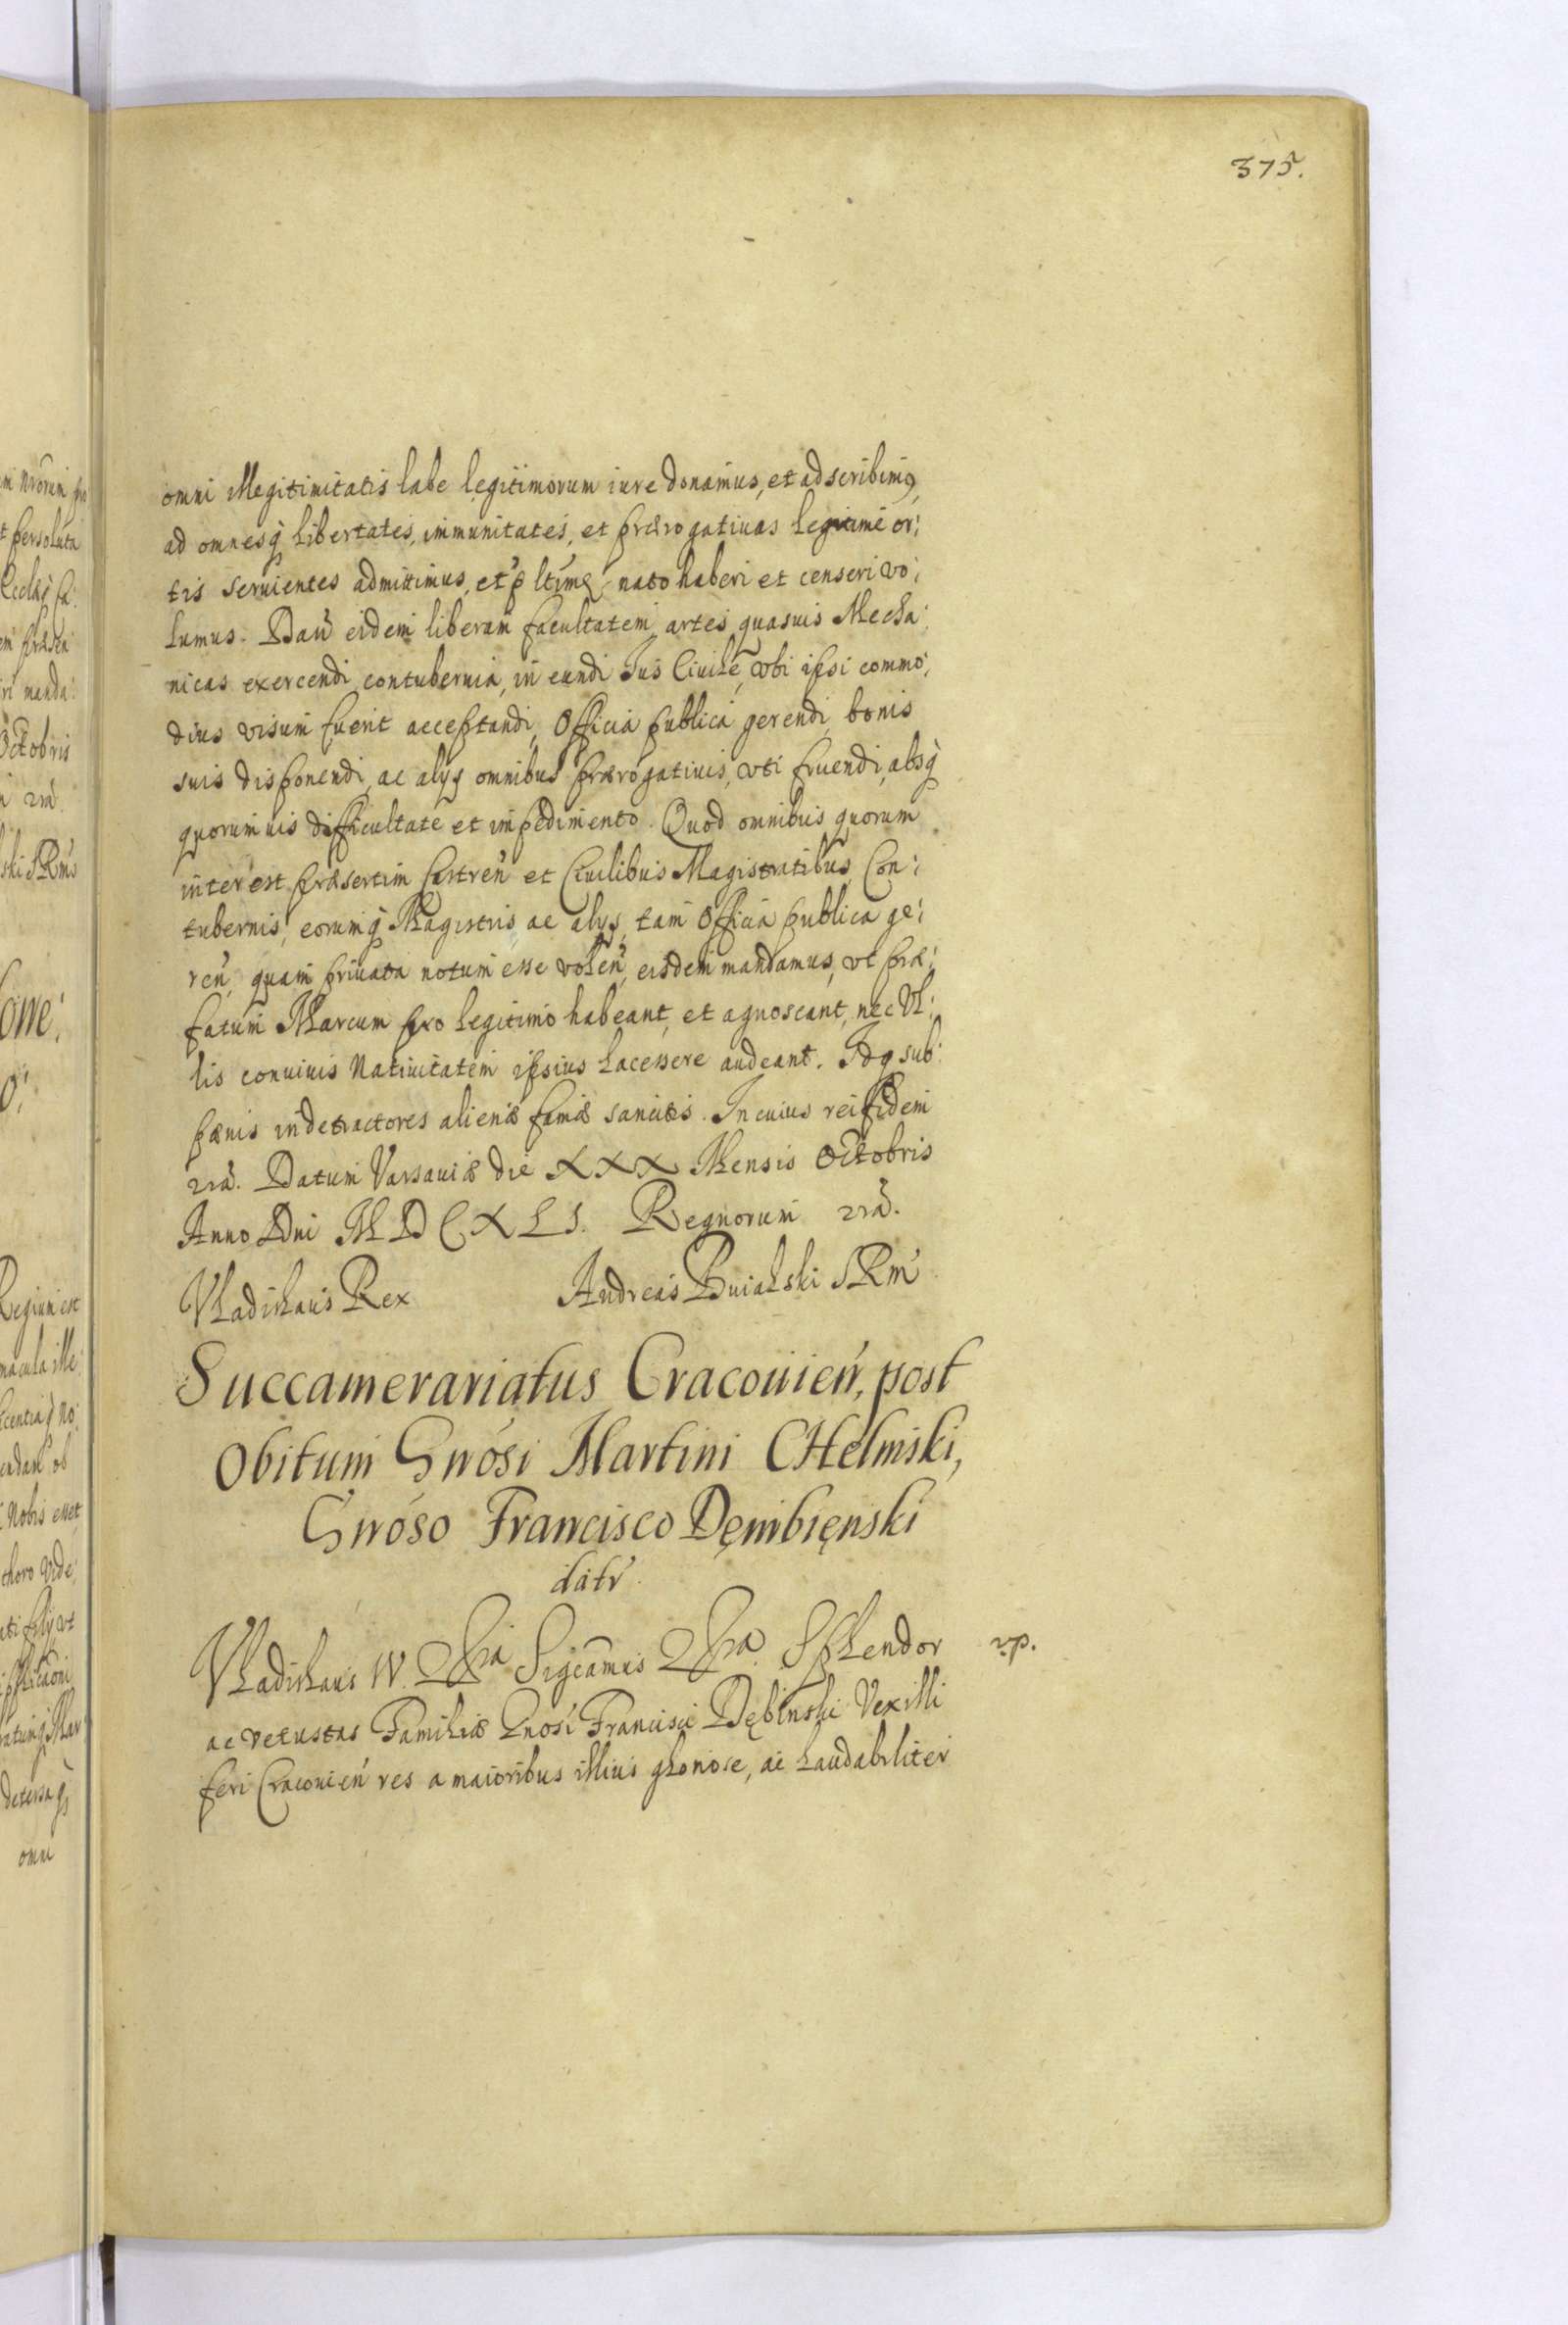 375.
omni illegitimitatis labe legitimorum iure donamus, et adscribimus,
ad omnesq̀ libertates, immunitates, et prærogatiuas legitime or:
tis seruientes admittimus, et p ltime nato haberi et censeri vo:
lumus. Dań eidem liberam facultatem artes quasuis Mecha:
nicas exercendi, contubernia, in eundi Jus Ciuile, vbi ipsi commo:
dius visum fuerit acceptandi, Officia publica gerendi, bonis
suis disponendi, ac alys omnibus prærogatiuis, vti fruendi, absq̀
quorumuis difficultate et impedimento. Quod omnibus quorum
interest præsertim Castreń et Ciuilibus Magistratibus, Con:
tubernis, eorumq̀ Magistris, ac alys, tam Officia publica ge:
reń, quam priuata notum esse voleń, eisdem mandamus, vt præ:
fatum Marcum pro legitimo habeant, et agnoscant, nec Vl:
lis conuiuis Natiuitatem ipsius lacessere audeant. Idq sub
pænis in detractores alienæ famæ sancitis. In cuius rei fidem
rrã. Datum Varsauiæ die XXX Mensis Octobris
Anno Dni M D C X L I. Regnorum rrã.
Vladislaus Rex Andreas Buialski SRM
Succamerariatus Cracouień, post
Obitum Gnrósi Martini CHelmski,
Gnróso Francisco Dęmbięnski
datr.
Vladislaus IV. Dei Grã Sigcamus Splendor vp.
ac vetustas Familiæ Gnosi Francisci Dębinski Vexilli
feri Cracouień res a maioribus illius gloriose, ac laudabiliter
im nrorum pro
t persoluta
em præsen
ri manda:
Octobris
rrã.
ski SRMs
Regium est
macula ille:
No:
ob
Nobis esset
thoro vide:
vt
Mar
detersa
omni